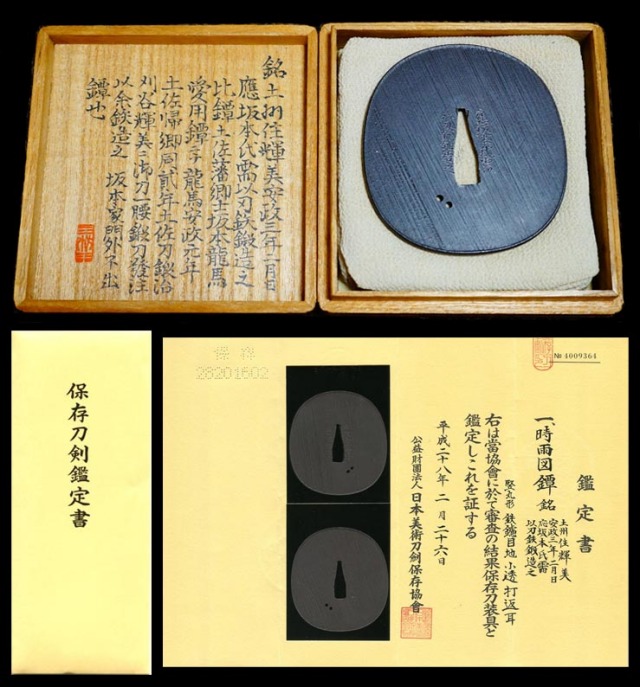 銘土州住輝美安政三年二月日
應坂本氏需以刃鉄鍛造之
比鐔土佐藩郷士坂本龍馬
愛用鐔ニテ龍馬安政元年
土佐帰郷同貳年土佐刀鍛冶
刈谷輝美ニ御刀一腰鍛刀發注
以余鉄造之 坂本家門外不出
鐔也
保存刀剣鑑定書
保存
28201602
№ 4009364
鑑定書
一、時雨図鐔 銘
土州住輝美
安政三年二月日
應坂本氏需
以刃鉄鍛造之
竪丸形 鉄鑢目地 小透 打返耳
右は當協會に於て審査の結果保存刀装具と
鑑定しこれを証する
平成二十八年 二月 二十六日
公益財團法人 日本美術刀剣保存協會